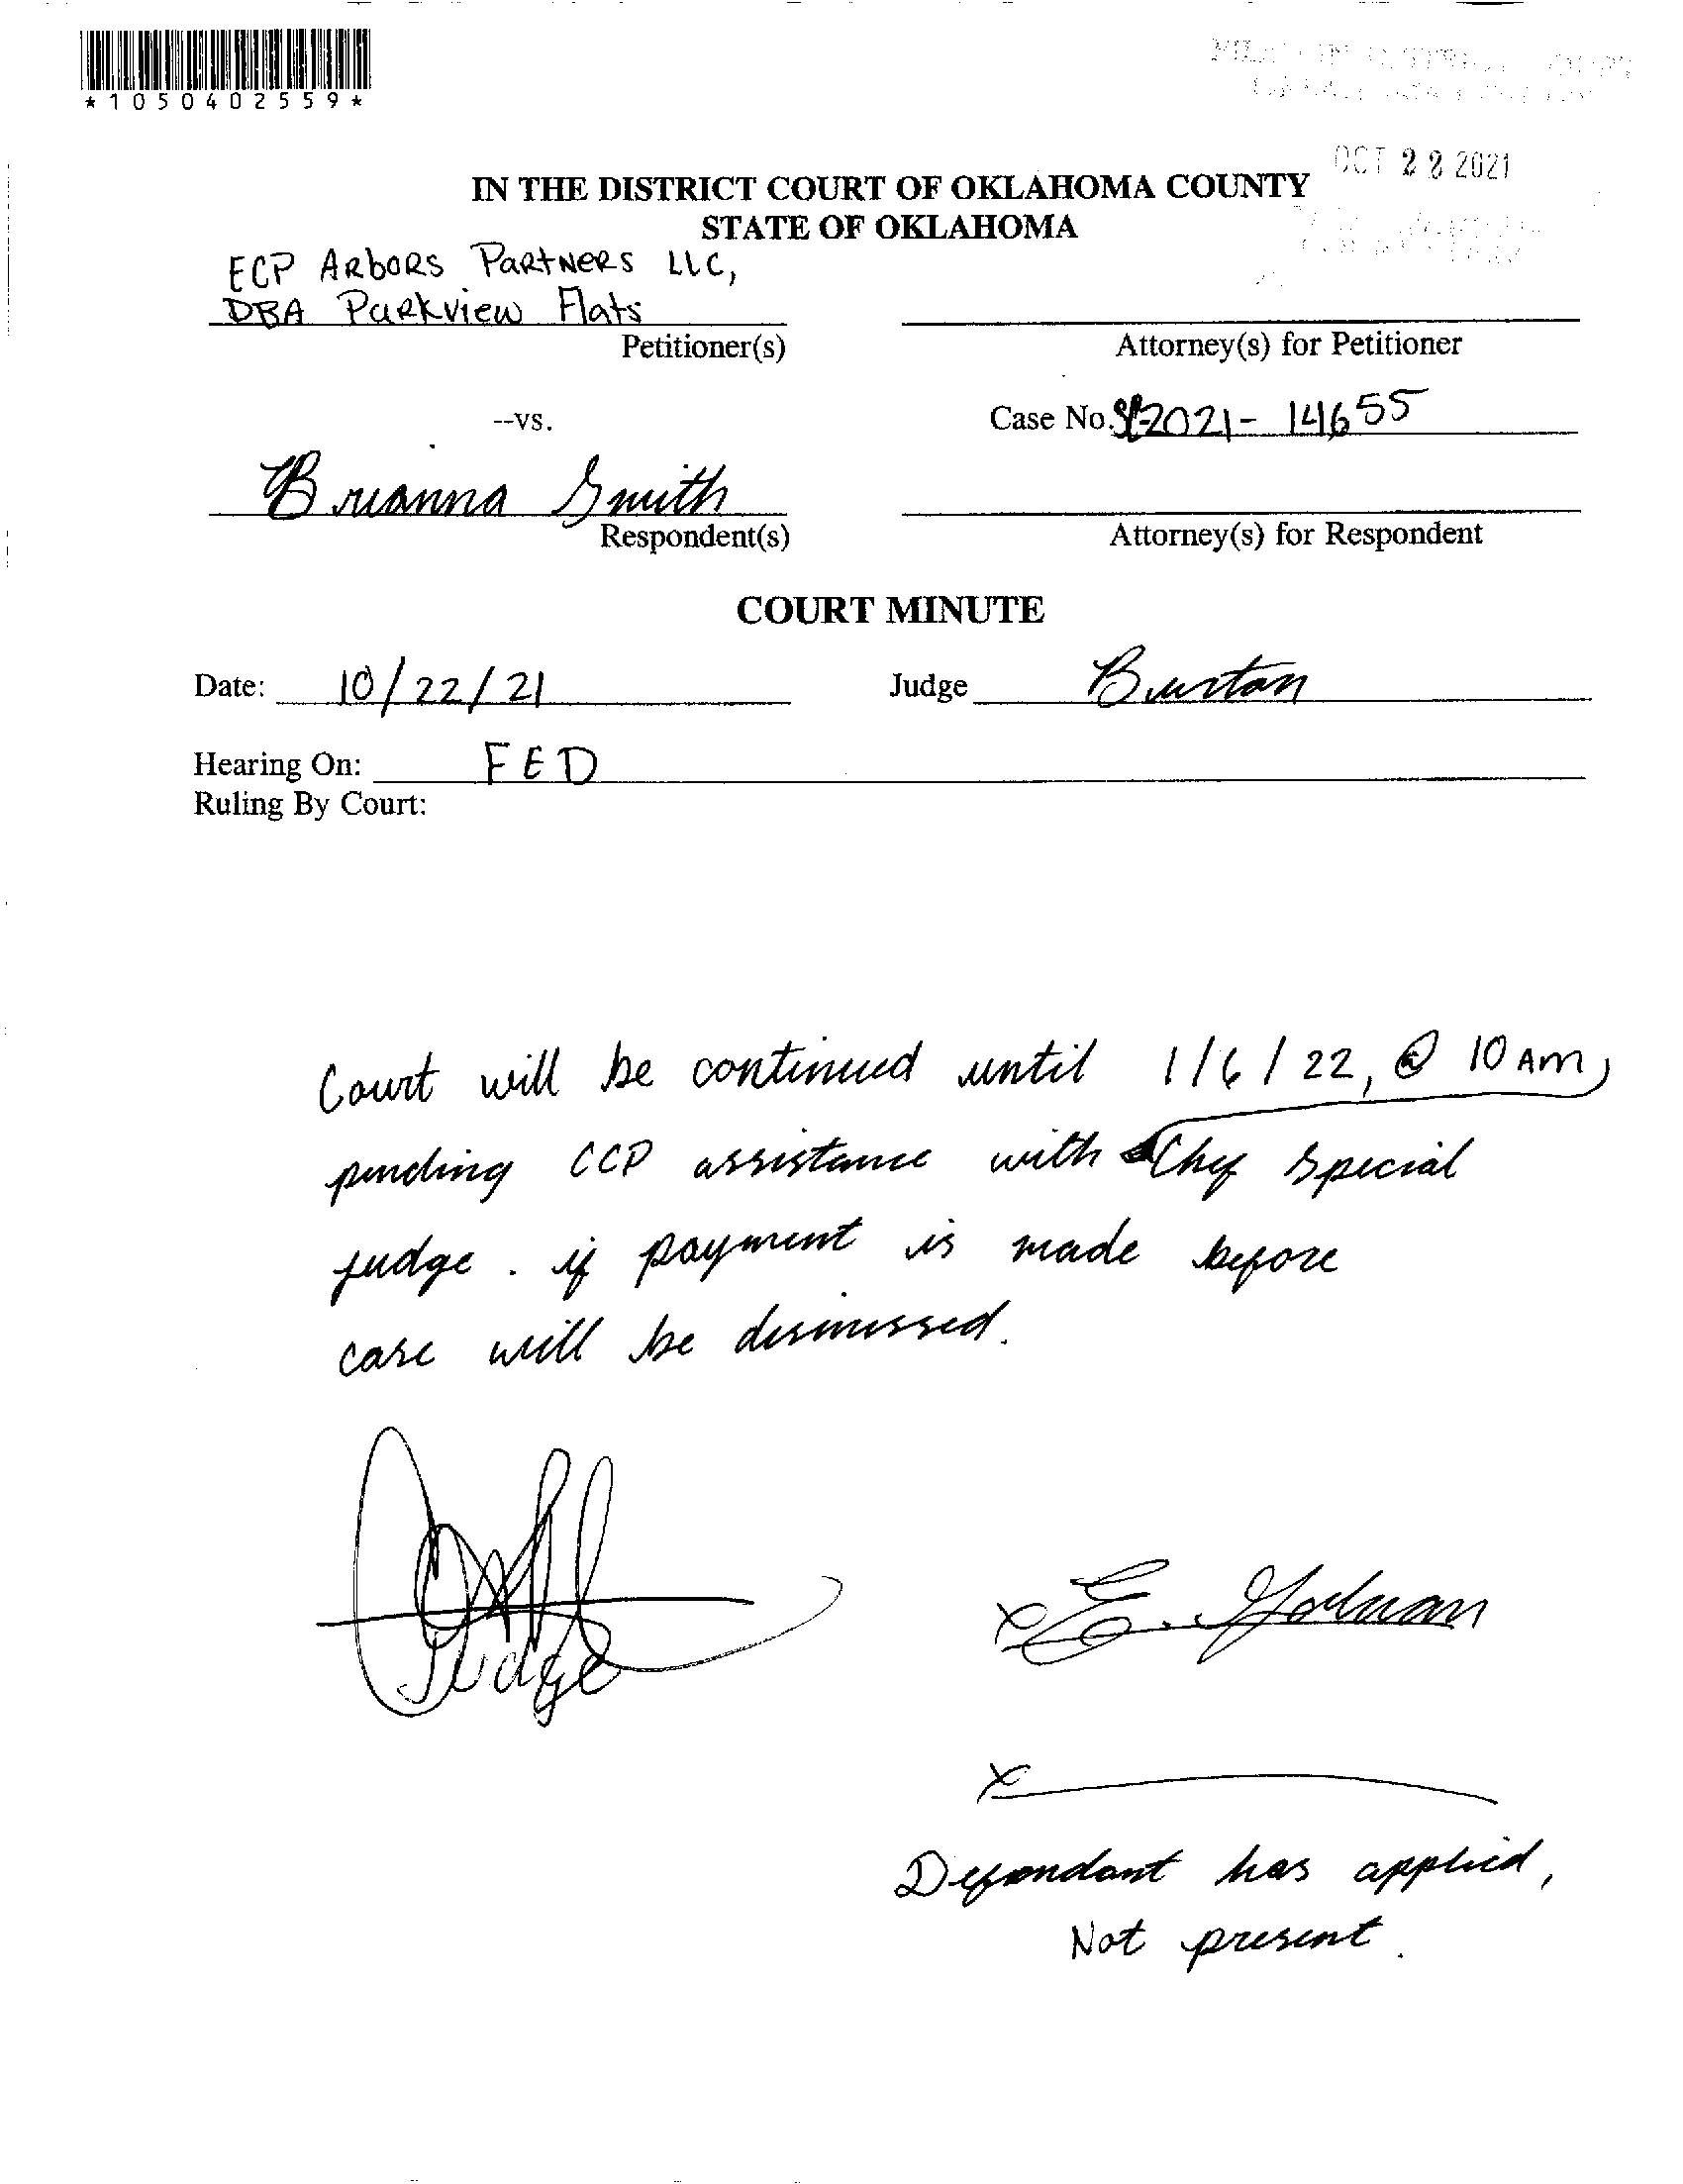 *1050402559*
OCT 22 2021
IN THE DISTRICT COURT OF OKLAHOMA COUNTY
STATE OF OKLAHOMA
ECP Arbors Partners LLC,
DBA Parkview Flats
Petitioner(s)
Attorney(s) for Petitioner
--vs.
Case No. 2021- 14655
Brianna Smith
Respondent(s)
Attorney(s) for Respondent
COURT MINUTE
Date: 10/22/21 Judge Burton
Hearing On: FED
Ruling By Court:
Court will be continued until 1/6/22, @ 10 Am,
pending CCP assistance with Chef Special
judge. if payment is made before
case will be dismissed.
Judge
x E.
x
Defendant has applied,
Not present.